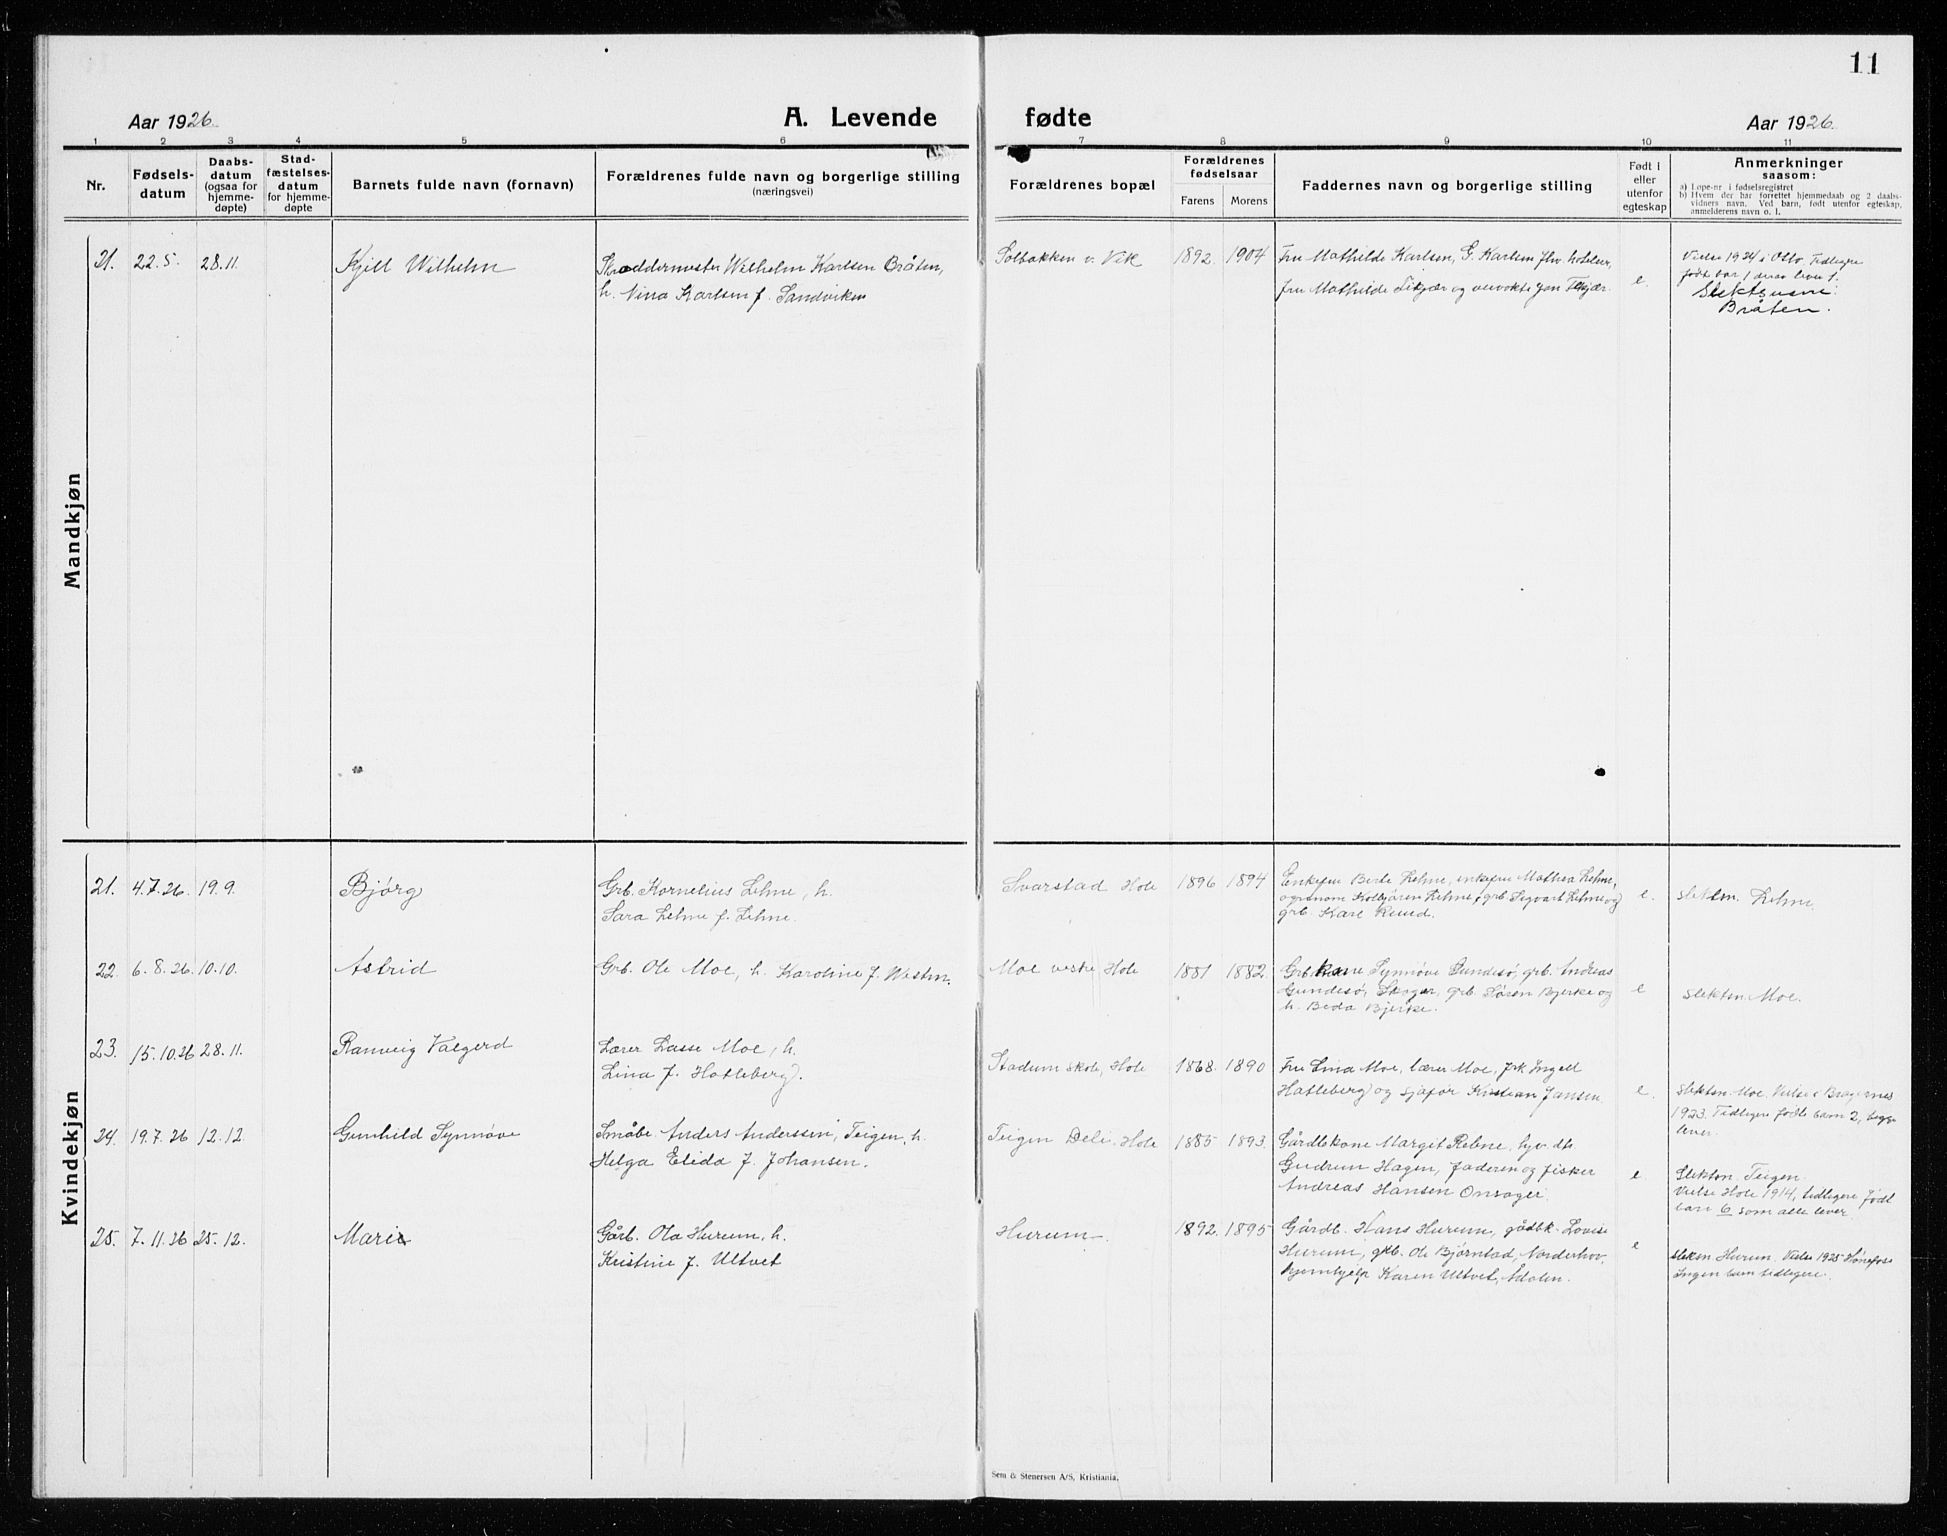 11
Aar 1926.
A. Levende
fødte
Aar 1926.
1 2 3 4 5 6 7 8 9 10 11
Nr.
Fødsels-
datum
Daabs-
datum
(ogsaa for
hjemme-
døpte)
Stad-
fæstelses-
datum
for hjemme-
døpte
Barnets fulde navn (fornavn)
Forældrenes fulde navn og borgerlige stilling
(næringsvei)
Forældrenes bopæl
Forældrenes
fødselsaar
Farens Morens
Faddernes navn og borgerlige stilling
Født i
eller
utenfor
egteskap
Anmerkninger
saasom:
a) Løpe-nr i fødselsregistret
b) Hvem der har forrettet hjemmedaab og 2 daabs-
vidners navn. Ved barn, født utenfor egteskap,
anmelderens navn o. l.
Mandkjøn
21. 22.5. 28.11. Kjell Wilhelm
Skreddermester Wilhelm Karlsen Bråten,
h. Nina Karlsen f. Sandviken
Solbakken v. Vik 1892. 1904
Fru Mathilde Karlsen, G. Karlsen fhv. hotelier,
fru Mathilde Tikjær og Jon Tikjær.
e.
Vielse 1924 i Oslo. Tidligere
født barn 1 derav lever 1.
Slektsnavn:
Bråten.
Kvindekjøn
21. 4.7.26 19.9. Bjørg
Grb. Kornelius Lehne, h.
Sara Lehne f. Lehne.
Svarstad Hole 1896 1894
Enkefru Berte Lehne, enkefru Mathea Lehne,
agronom Kolbjøren Lehne, grb. Sigvart Lehne og
grb. Kare Rund.
e.
slektsn. Lehne.
22. 6.8.26 10.10. Astrid
Grb. Ole Moe, h. Karoline f. Western.
Moe vestre, Hole 1881 1882.
Grb.kone Synnøve Gundesø, grb. Andreas
Gundesø, Skoger, grb. Søren Bjerke og
h. Beda Bjerke.
e
slektsn. Moe.
23. 15.10.26 28.11. Ranveig Valgerd
Lærer Lasse Moe, h.
Lina f. Hatleberg).
Stadum skole, Hole 1868. 1890
Fru Lina Moe, lærer Moe, frk Ingell
Hatleberg) og sjåfør Kristian Jansen
e.
slektsn. Moe. Vielse i Bragernes
1923. Tidligere fødte barn 2, begge
lever.
24. 19.7.26 12.12. Gunhild Synnøve
Småbr. Anders Anderssen, Teigen, h.
Helga Elida f. Johansen.
Teigen Deli. Hole 1885 1893.
Gårdbkone Margit Rebne, hjv. dtr.
Gudrun Hagen, faderen og fisker
Andreas Hansen Onsager.
e.
Slektsn. Teigen.
Vielse Hole 1914, tidligere født
barn 6 som alle lever.
25. 7.11.26 25.12. Marie
Gårb. Ola Hurum, h.
Kristine f. Ultvet
Hurum 1892. 1895
Gårdb. Hans Hurum, gådbk. Lovise
Hurum, grb. Ole Bjørnstad, Norderhov,
hjemhjelp Karen Ultvet, Ådalen.
e
slektsn Hurum, Vielse 1925 Hønefoss
Ingen barn tidligere.
Sem & Stenersen A/S, Kristiania.